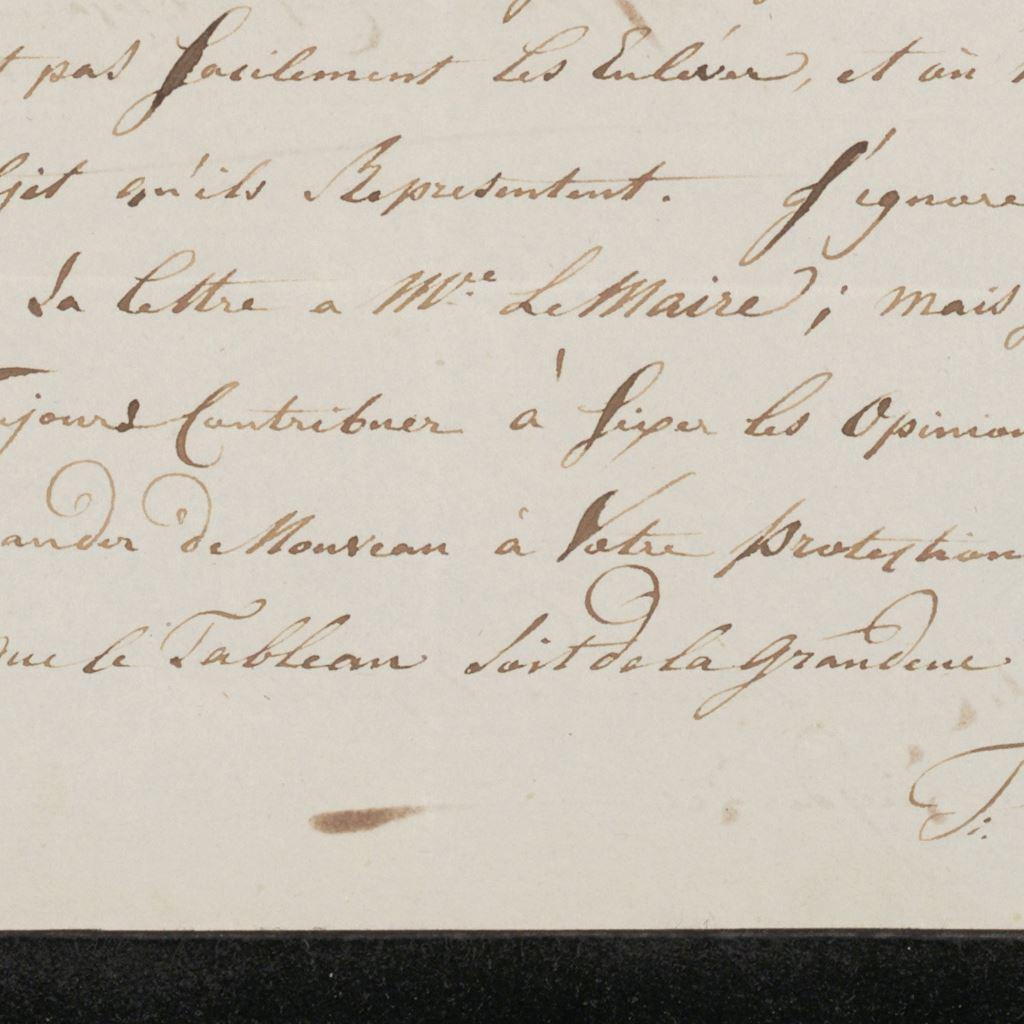 t pas facilement les Enléver, et ou
jet qu'ils Representent. J'ignore
Sa lettre a Mr.e Le Maire ; mais
ujours Contribuer à fixer les Opinion
ander de Nouveau à Votre protection
que le Tableau soit de la grandeur
T: